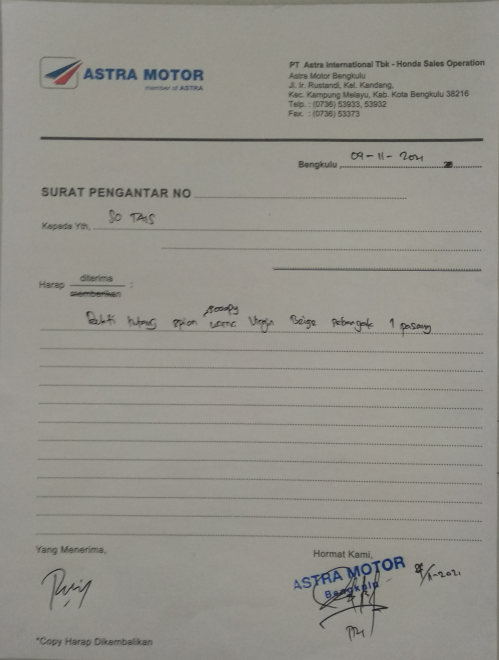 ASTRA MOTOR
member of ASTRA
PT Astra International Tbk - Honda Sales Operation
Astra Motor Bengkulu
Jl. Ir. Rustandi, Kel. Kandang,
Kec. Kampung Melayu, Kab. Kota Bengkulu 38216
Telp. : (0736) 53933, 53932
Fax. : (0736) 53373
Bengkulu, 09-11-2021
SURAT PENGANTAR NO
Kepada Yth, SO TAIS
Harap diterima
memberikan :
hutang spion scoopy warna Virgin Beige Sebanyak 1 pasang
Yang Menerima,
Hormat Kami,
ASTRA MOTOR
Bengkulu
*Copy Harap Dikembalikan